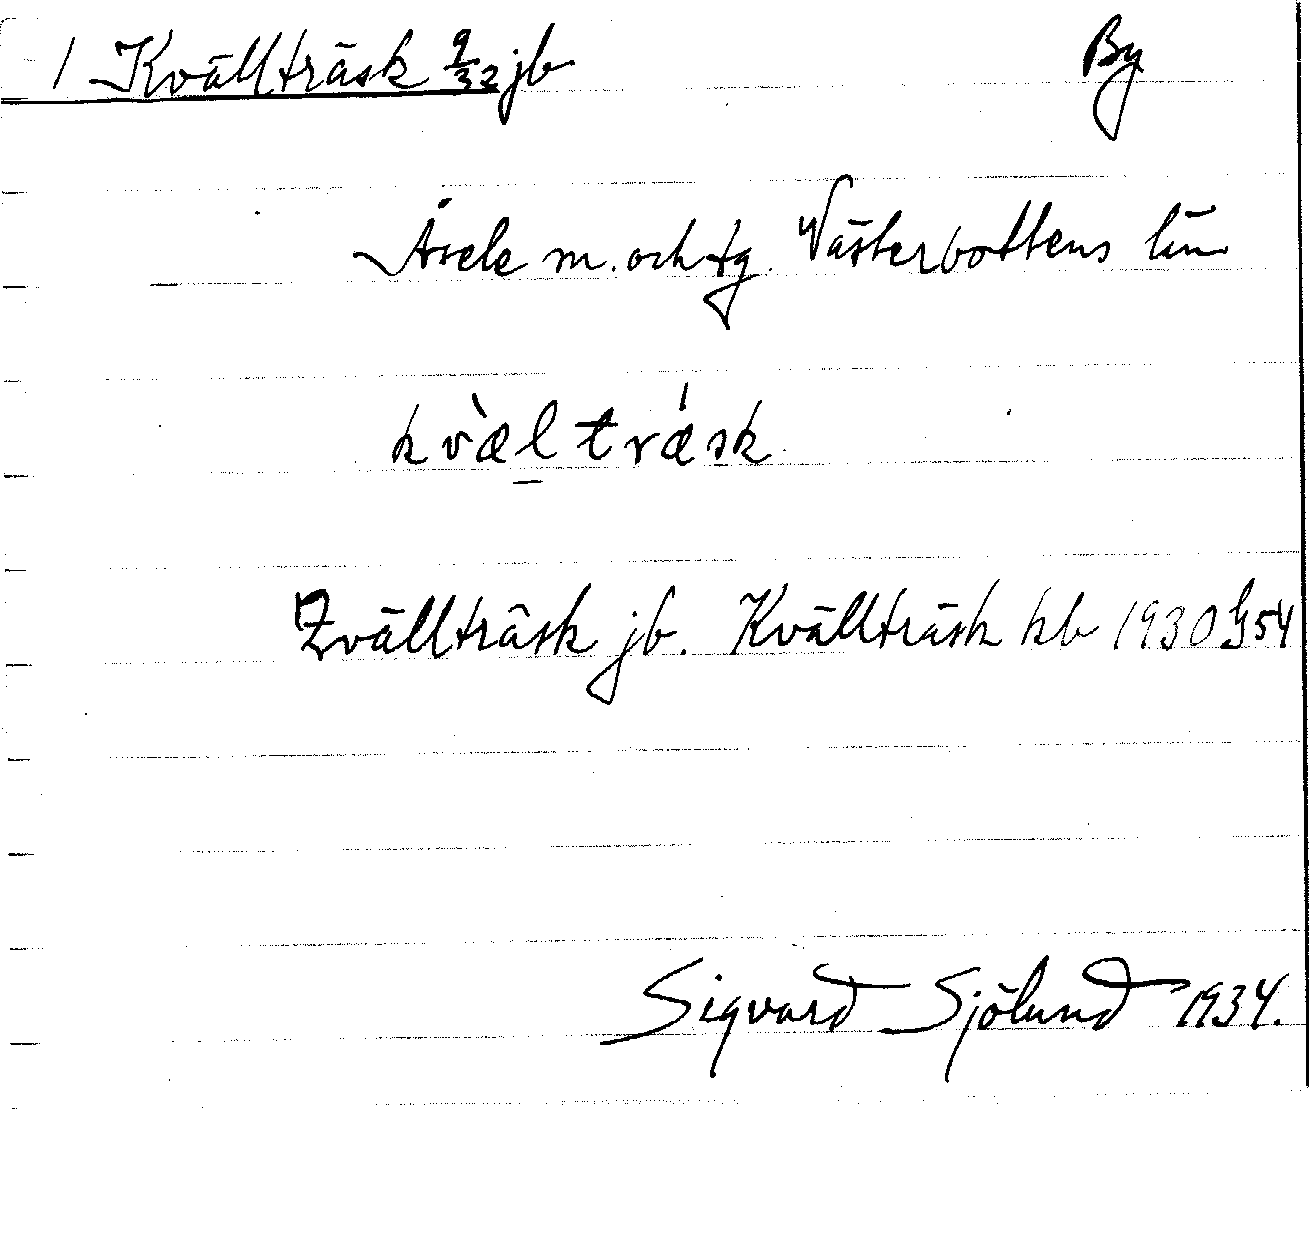 1 Kvällträsk 9/32 jb By
Åsele m. och tg. Västerbottens län
kvæ̀l trǽsk
Kvällträsk jb. Kvällträsk kb 1930 G54
Sigvard Sjölund 1934.